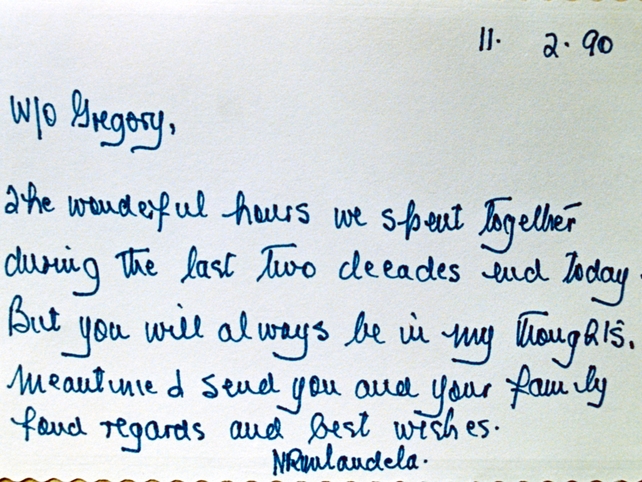 11. 2.90
W/O Gregory,
The wonderful hours we spent together
during the last two decades end today.
But you will always be in my thoughts.
Meantime I send you and your family
fond regards and best wishes.
NRMandela.